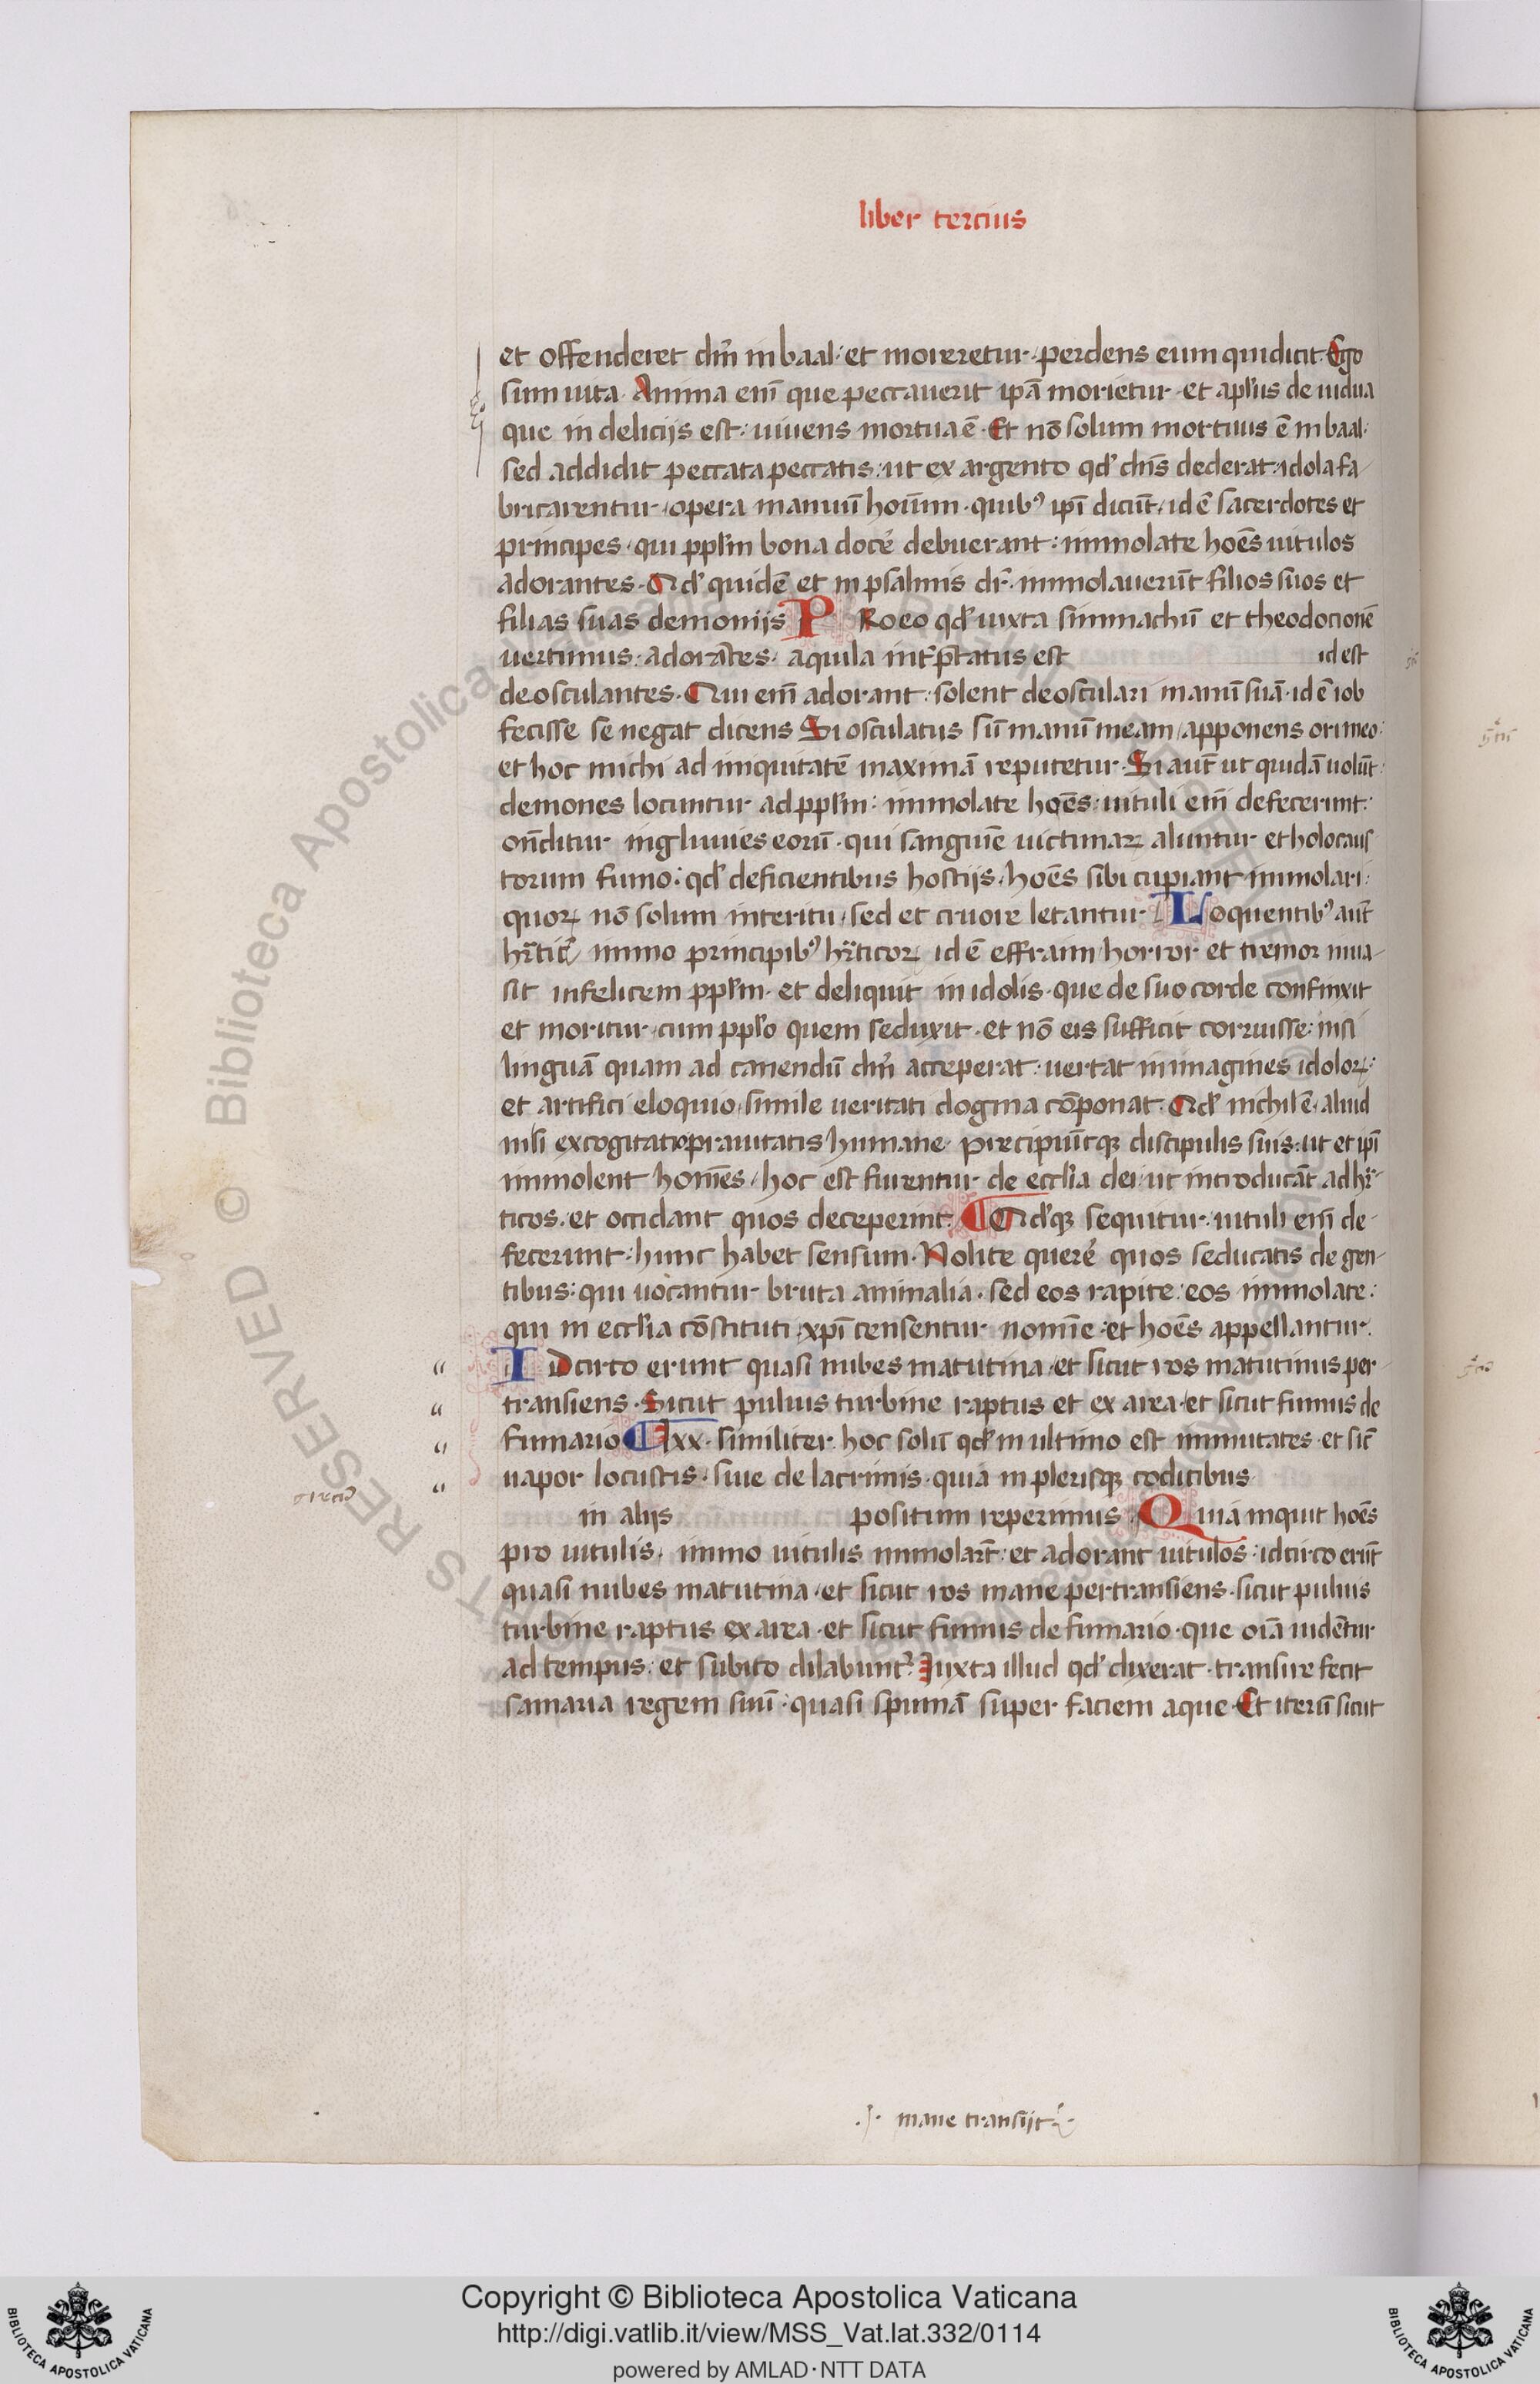 liber tercius
et offenderet dm̄ in baal· et moreretur· perdens eum qui dicit· Ego
sum uita· Anima em̄ que peccauerit ip̄a morietur· et apl'us de uidua
que in delicijs est: uiuens mortua ē· Et nō solum mortuus ē in baal·
sed addidit peccata peccatis: ut ex argento qd' dn̄s dederat: idola fa-
bricarentur· opera manuū hoīum· quibꝰ ip̄i dicūt· id ē sacerdotes et
principes· qui ppl'm bona docē debuerant: immolate hoēs uitulos
adorantes· Qd' quidē et in psalmis dr̄· immolauerūt filios suos et
filias suas demonijs PRoeo qd' iuxta simmachū et theodocionē
uertimus· adorātes· aquila int'p̄tatus est id est
deosculantes· Qui em̄ adorant: solent deosculari manū suā· id ē iob
fecisse se negat dicens Si osculatus sū manū meam, apponens ori meo:
et hoc michi ad iniquitatē maximā reputetur· Si aut̄ ut quidā uolūt:
demones locuntur ad ppl'm: immolate hoēs: uituli em̄ defecerunt:
on̄ditur ingluuies eorū· qui sanguīe uictimaꝝ aluntur et holocaus
torum fumo: qd' deficientibus hostijs, hoēs sibi cupiant immolari:
quoꝝ nō solum interitu, sed et cruore letantur· Loquentibꝰ aut̄
immo principibꝰ hr̄ticoꝝ id ē effraim, horror et tremor inua-
sit infelicem ppl'm· et deliquit in idolis· que de suo corde confinxit
et moritur cum ppl'o quem seduxit· et nō eis sufficit corruisse: nisi
linguā quam ad canendū dn̄i acceperat: uertat in imagines idoloꝝ:
et artifici eloquio, simile ueritati dogma cōponat· Qd' nichil ē aliud
nisi excogitatio prauitatis humane· precipiūtqꝫ discipulis suis: ut et ip̄i
immolent homīes, hoc est furentur de eccl'ia dei: ut introducāt ad hr̄-
ticos· et occidant quos deceperint· Qd'qꝫ sequitur· uituli em̄ de-
fecerunt: hunc habet sensum· Nolite querē quos seducatis de gen-
tibus: qui uocantur bruta animalia· sed eos rapite: eos immolate:
qui in eccl'ia cōstituti, xp̄i censentur nomīe: et hoēs appellantur·
IDcirco erunt quasi nubes matutina, et sicut ros matutinus per
transiens· Sicut puluis turbine raptus et ex area, et sicut fumus de
fumario lxx· similiter· hoc solū qd' in ultimo est immutātes· et sic̄
uapor locustis· siue de lacrimis· quia in plerisqꝫ codicibus
in alijs positum reperimus· Quia inquit hoēs
pro uitulis· immo uitulis immolar̄t: et adorant uitulos: idcirco erūt
quasi nubes matutina, et sicut ros mane pertransiens· sicut puluis
turbine raptus ex area· et sicut fumus de fumario· que oīa uidētur
ad tempus: et subito dilabuntꝰ· Iuxta illud qd' dixerat· transire fecit
samaria regem suū: quasi spumā super faciem aque· Et iterū sicut
mane transijt
Copyright © Biblioteca Apostolica Vaticana
http://digi.vatlib.it/view/MSS_Vat.lat.332/0114
powered by AMLAD·NTT DATA